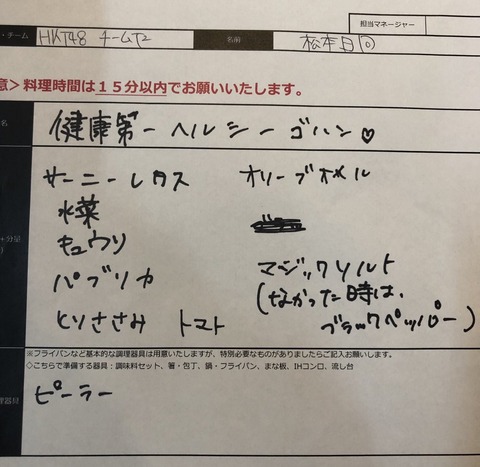 担当マネージャー
・チーム HKT48 チームT2 名前 松本日向
意＞料理時間は１５分以内でお願いいたします。
名 健康第一ヘルシーゴハン♡
サーニーレタス オリーブオイル
水菜
キュウリ
＋分量
パプリカ マジックソルト
(なかった時は、
とりささみ トマト ブラックペッパー)
※フライパンなど基本的な調理器具は用意いたしますが、特別必要なものがありましたらご記入お願いします。
◇こちらで準備する器具：調味料セット、箸・包丁、鍋・フライパン、まな板、IHコンロ、流し台
理器具 ピーラー